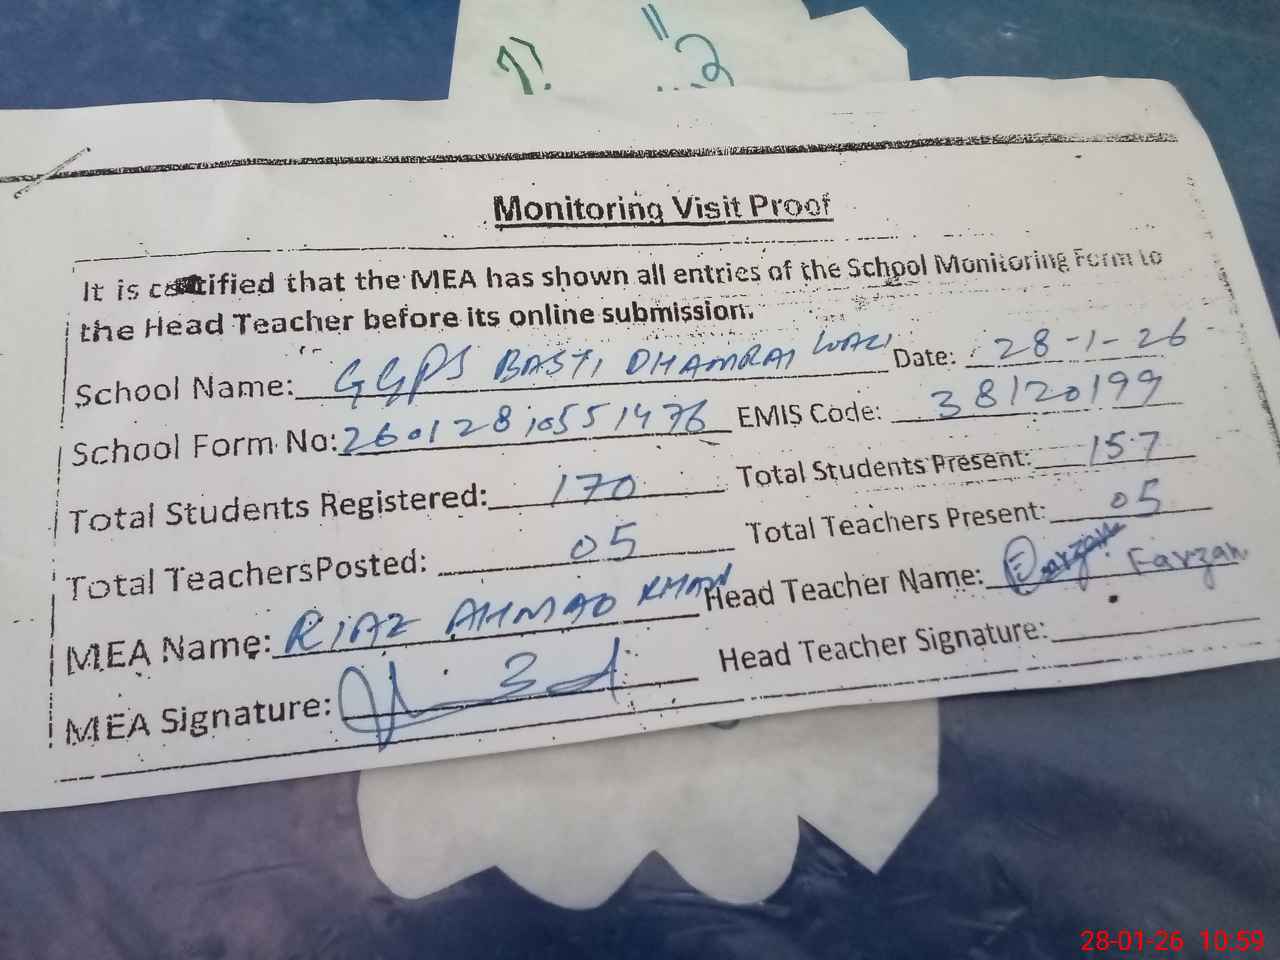 Monitoring Visit Proof
It is certified that the MEA has shown all entries of the School Monitoring Form to
the Head Teacher before its online submission.
School Name: GGPS BASTI DHAMRAI WALI Date: 28-1-26
School Form No: 26012810551476 EMIS Code: 38120199
Total Students Registered: 170 Total Students Present: 157
Total Teachers Posted: 05 Total Teachers Present: 05
MEA Name: RIAZ AHMAD KHAN Head Teacher Name: Farzan
MEA Signature: Head Teacher Signature:
28-01-26 10:59